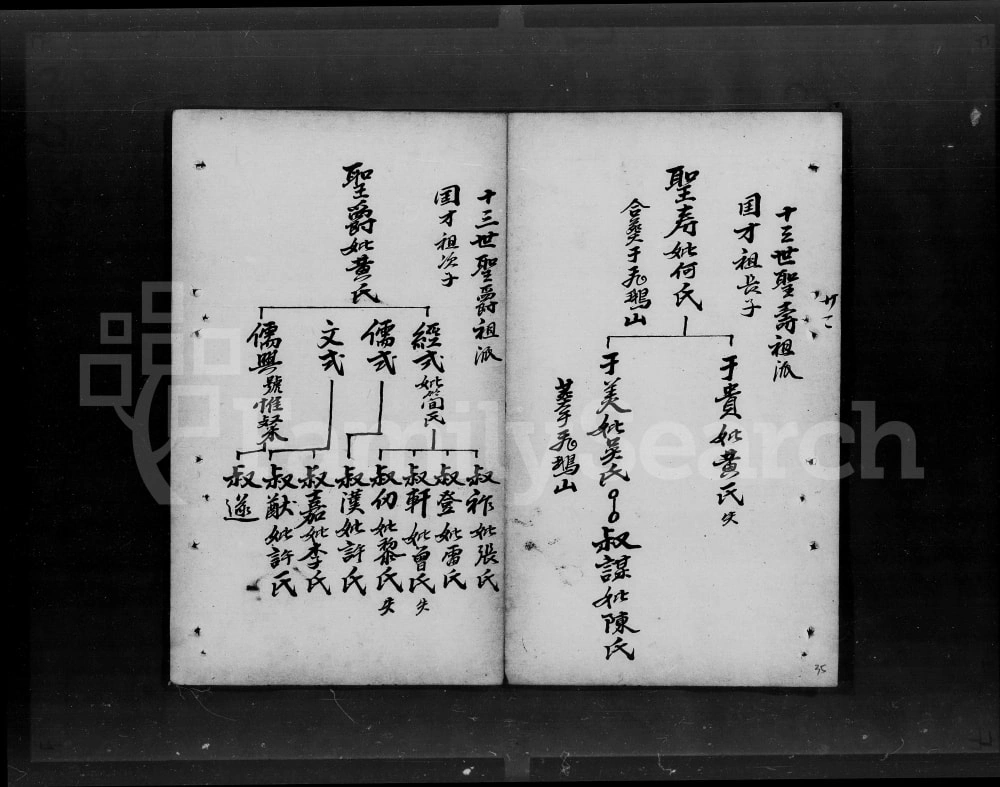 十三世聖壽祖派
廿二
国才祖長子
聖寿妣何氏
合葬于飛鵝山
于貴妣黄氏失
于美妣吴氏
叔謀妣陳氏
葬于飛鵝山
35
十三世聖爵祖派
国才祖次子
聖爵妣黄氏
經式妣簡氏
儒式
文式
儒興號惟粲
叔祚妣張氏
叔登妣雷氏
叔軒妣曾氏失
叔仂妣黎氏失
叔漢妣許氏
叔嘉妣李氏
叔猷妣許氏
叔遂
FamilySearch